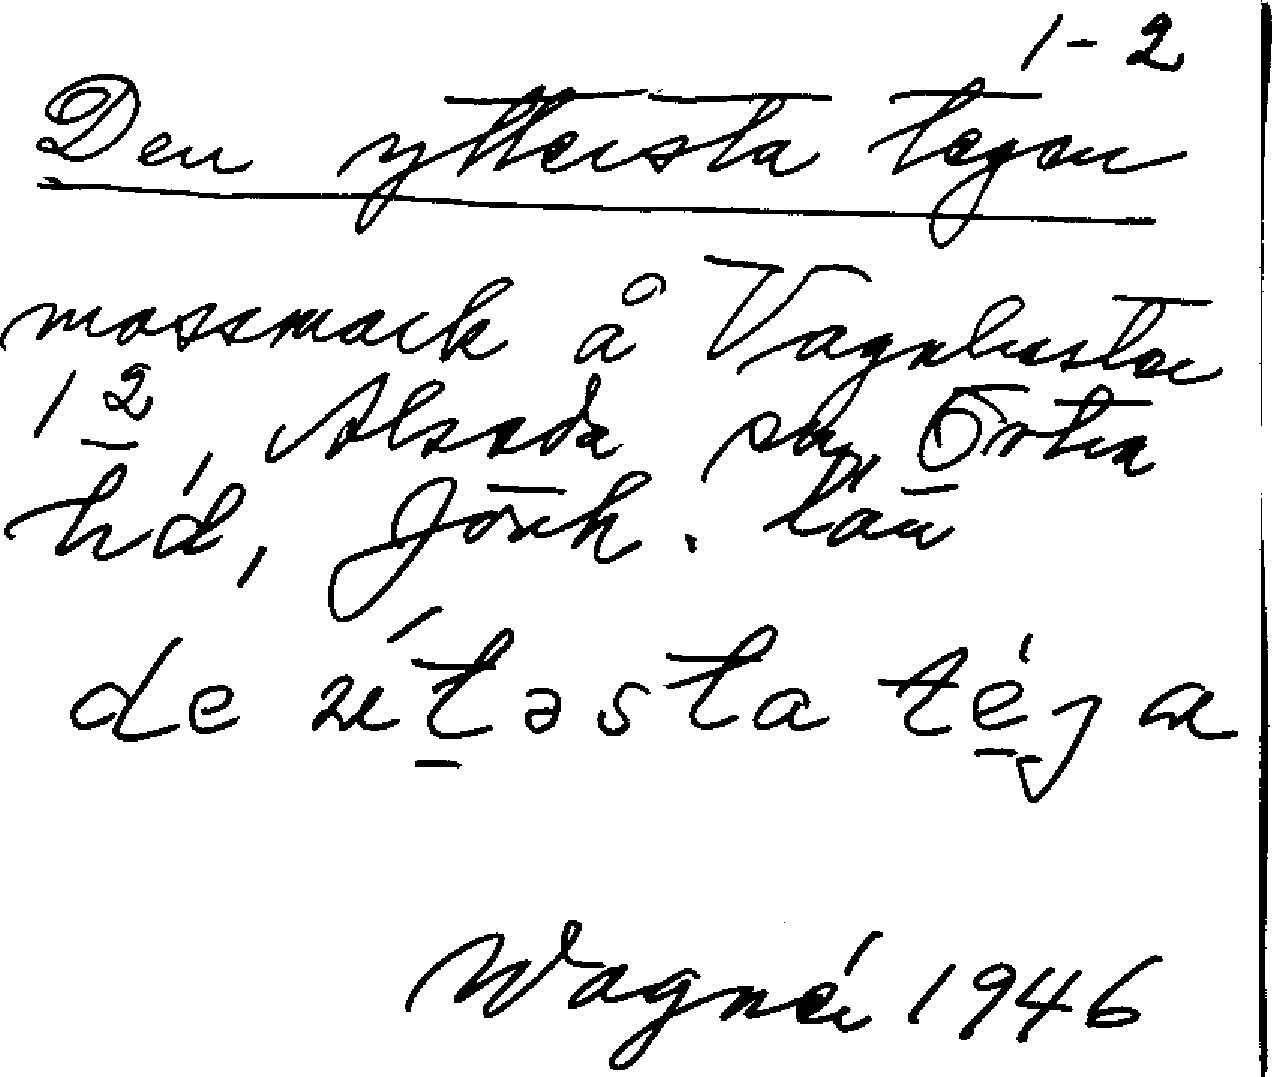 1-2
Den yttersta tegen
mossmark å Vagnhester
1 2, Alseda sn, Östra
hd, Jönk. län
de ʉtəsta téja
Wagnér 1946